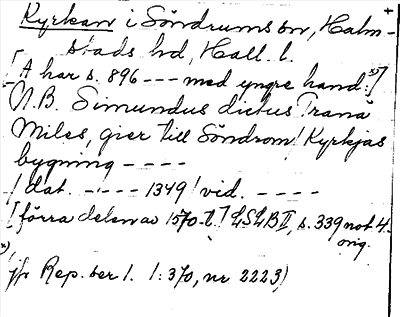 Kyrkan i Söndrums sn, Halm-
stads hd, Hall. l.
[A har s. 896 --- med yngre hand:]
N.B. Simundus dictus Tranä
Miles, gier till Söndrom! Kyrkjas
bygning ----
! dat. ---- 1349! vid. ----
[förra delen av 1570-t.] LSLB II, s. 339 not 4.
orig.
jfr Rep. ser 1. 1:370, nr 2223)